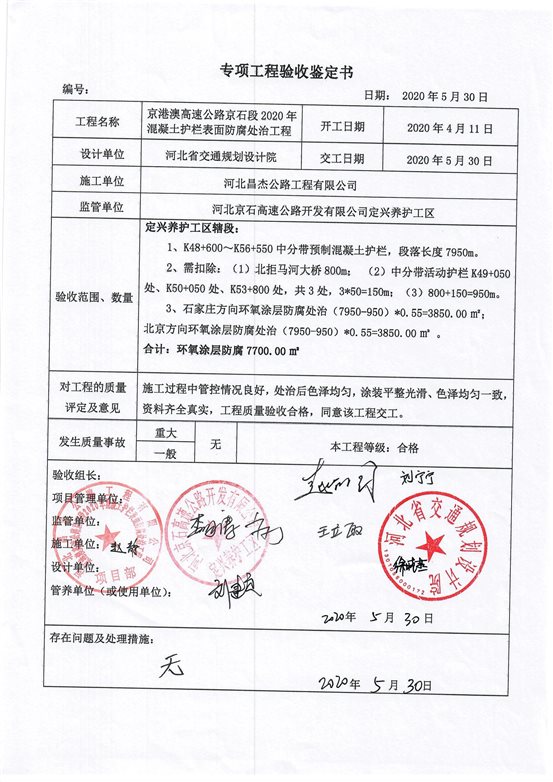 专项工程验收鉴定书
编号：
日期： 2020年5月30日
工程名称
京港澳高速公路京石段2020年
混凝土护栏表面防腐处治工程
开工日期
2020年4月11日
设计单位
河北省交通规划设计院
交工日期
2020年5月30日
施工单位
河北昌杰公路工程有限公司
监管单位
河北京石高速公路开发有限公司定兴养护工区
验收范围、数量
定兴养护工区辖段：
1、K48+600～K56+550中分带预制混凝土护栏，段落长度7950m。
2、需扣除：（1）北拒马河大桥800m；（2）中分带活动护栏K49+050
处、K50+050处、K53+800处，共3处，3*50=150m；（3）800+150=950m。
3、石家庄方向环氧涂层防腐处治（7950-950）*0.55=3850.00㎡；
北京方向环氧涂层防腐处治（7950-950）*0.55=3850.00㎡。
合计：环氧涂层防腐7700.00㎡
对工程的质量
评定及意见
施工过程中管控情况良好，处治后色泽均匀，涂装平整光滑、色泽均匀一致，
资料齐全真实，工程质量验收合格，同意该工程交工。
发生质量事故
重大
一般
无
本工程等级：合格
验收组长：
刘宁宁
项目管理单位：
监管单位：
王立敏
施工单位：
设计单位：
管养单位（或使用单位）：
项目部
定兴养护工区
河北省交通规划设计院
2020年5月30日
存在问题及处理措施：
无
2020年5月30日